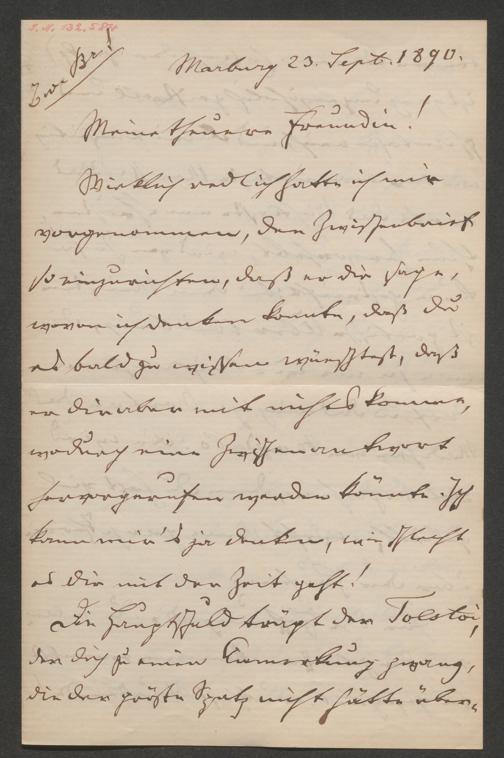 I.N. 132.584
Zwe Br!
Marburg 23. Sept. 1890.
Meine theuere Freundin!
Wirklich redlich hatte ich mir
vorgenommen, den Zwischenbrief
so einzurichten, daß er dir sage,
wovon ich denken konnte, daß du
es bald zu wissen wünschtest, daß
er dir aber mit nichts komme,
wodurch eine Zwischenantwort
hervorgerufen werden könnte. Ich
kann mir's ja denken, wie schlecht
es dir mit der Zeit geht!
Die Hauptschuld trägt der Tolstoi,
der dich zu einer Anmerkung zwang,
die der größte Spatz nicht hätte über-